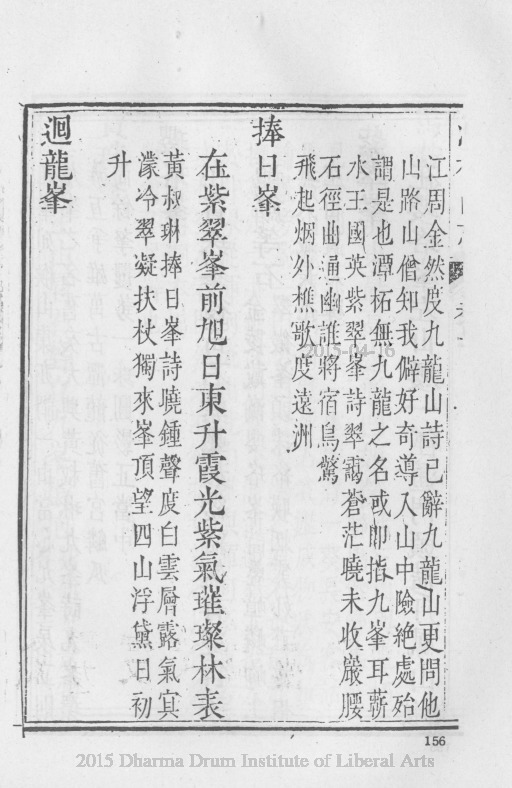 江周金然度九龍山詩已辭九龍山更問他
山路山僧知我僻好奇導入山中險絕處殆
謂是也潭柘無九龍之名或即指九峯耳蘄
水王國英紫翠峯詩翠靄蒼茫曉未收巖腰
石徑曲通幽誰將宿鳥驚
飛起烟外樵歌度遠洲
捧日峯
在紫翠峯前旭日東升霞光紫氣璀璨林表
黃叔琳捧日峯詩曉鍾聲度白雲層露氣寘
濛冷翠凝扶杖獨來峯頂望四山浮黛日初
升
迴龍峯
2015-04-16
156
2015 Dharma Drum Institute of Liberal Arts